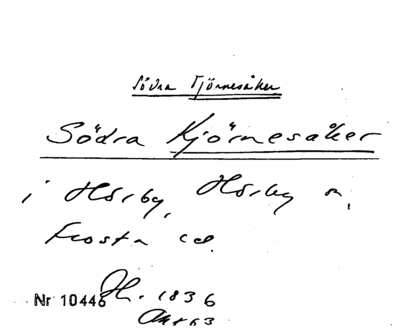 Södra Tjörnesåker
Södra Kjörnesåker
i Hörby, Hörby sn,
Frosta hd.
Nr 10446 Jh. 1836
Akt 63